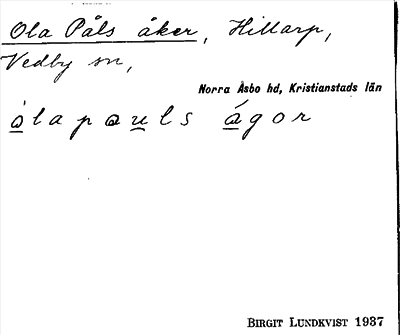 Ola Påls åker, Hillarp,
Vedby sn,
Norra Åsbo hd, Kristianstads län
òlapaʉls ágor
BIRGIT LUNDKVIST 1937